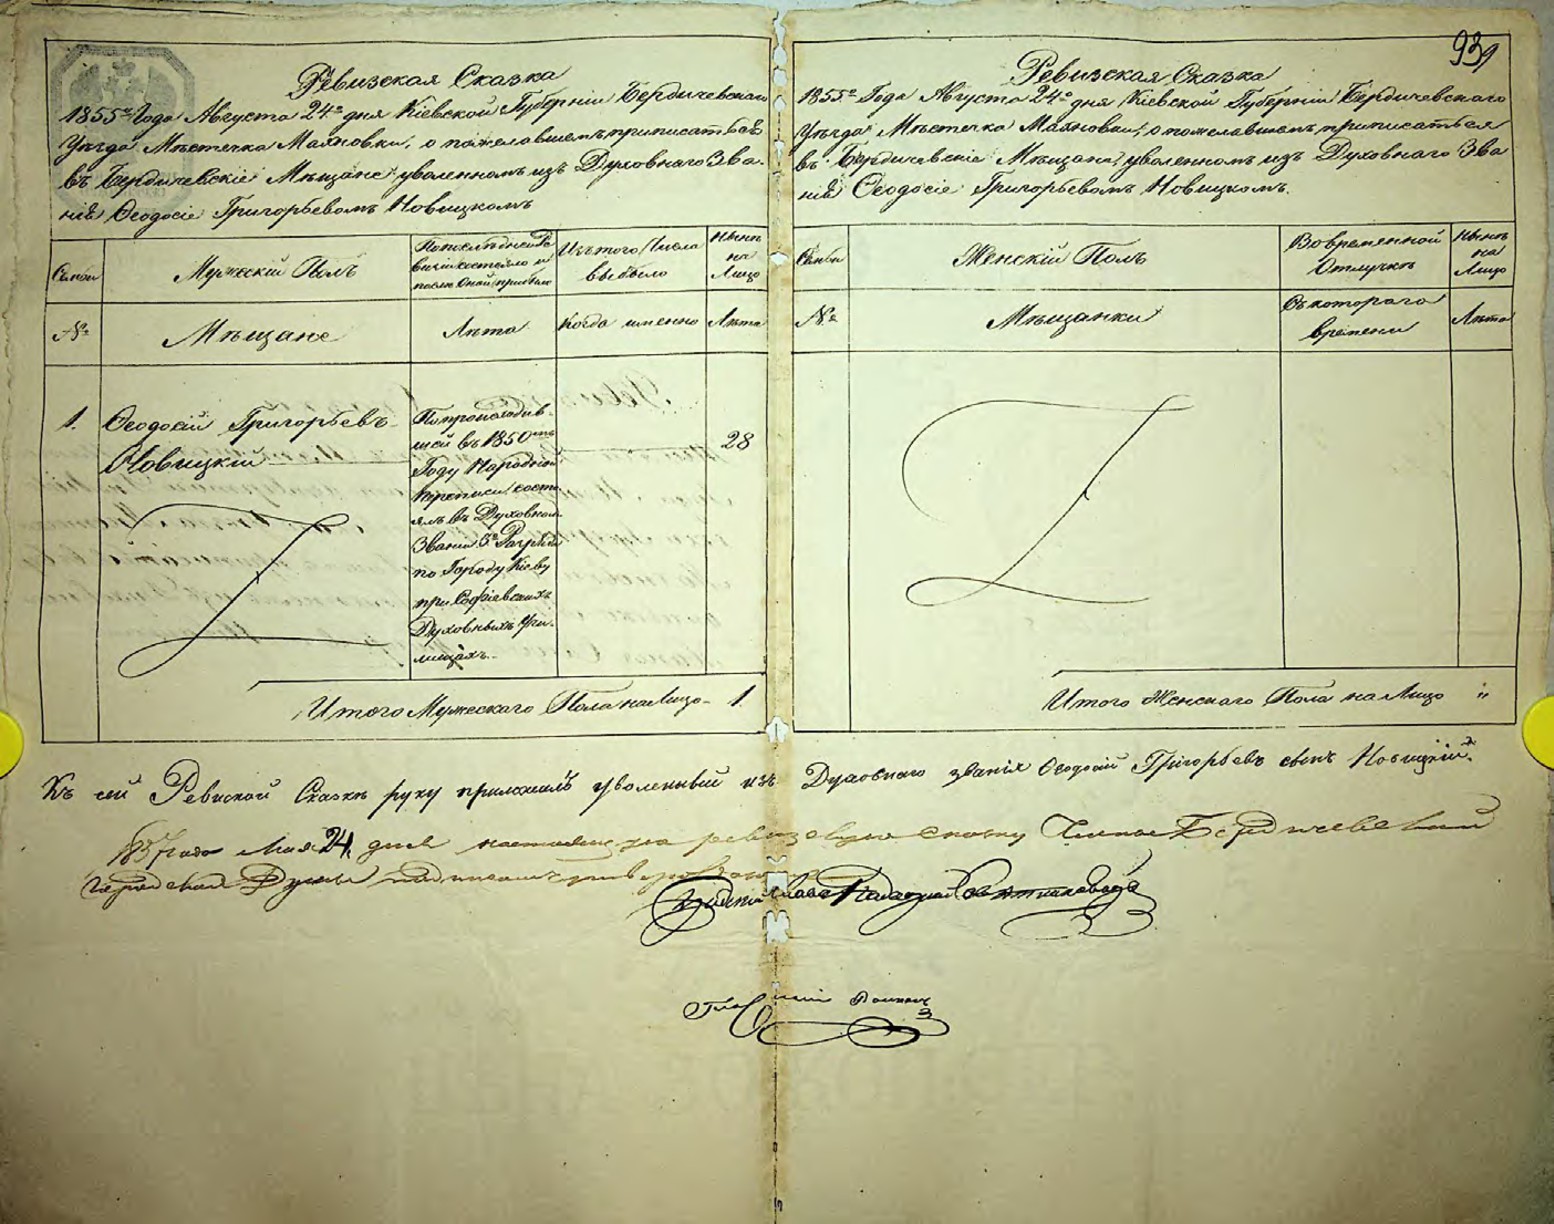 939
Ревизская Сказка
1855го Года Августа 24го дня Кіевской Губерніи Бердичевскаго
Уѣзда Мѣстечка Махновки, о пожелавшемъ приписаться
въ Бердичевскіе Мѣщане уволенномъ изъ Духовнаго Зва-
нія Ѳеодосіе Григорьевомъ Новицкомъ
Семьи
Мужескій Полъ
По послѣдней Ре
визіи состояло и
послѣ оной прибыло
Изъ того Числа
выбыло
Нынѣ
на
Лицо
№
Мѣщане
Лѣта
Когда именно
Лѣта
1.
Ѳеодосій Григорьевъ
Новицкій
По происходив-
шей въ 1850мъ
Году Народной
переписи состо
ялъ въ Духовном
Званіи 3го Разряда
по Городу Кіеву
при Софіевскихъ
Духовныхъ Учи-
лищахъ.
28
Итого Мужескаго Пола на Лицо - 1.
Ревизская Сказка
1855го Года Августа 24го дня Кіевской Губерніи Бердичевскаго
Уѣзда Мѣстечка Махновки, о пожелавшемъ приписаться
въ Бердичевскіе Мѣщане, уволенномъ изъ Духовнаго Зва
нія Ѳеодосіе Григорьевомъ Новицкомъ.
Семьи
Женскій Полъ
Во временной
Отлучкѣ
Нынѣ
на
Лицо
№
Мѣщанки
Съ котораго
времени
Лѣта
Итого Женскаго Пола на Лицо "
Къ сей Ревизской Сказкѣ руку приложилъ уволенный изъ Духовнаго званія Ѳеодосій Григорьевъ сынъ Новицкій.
1857 года Мая 24 дня настоящую ревизскую сказку Бердичевской
Городской Думы